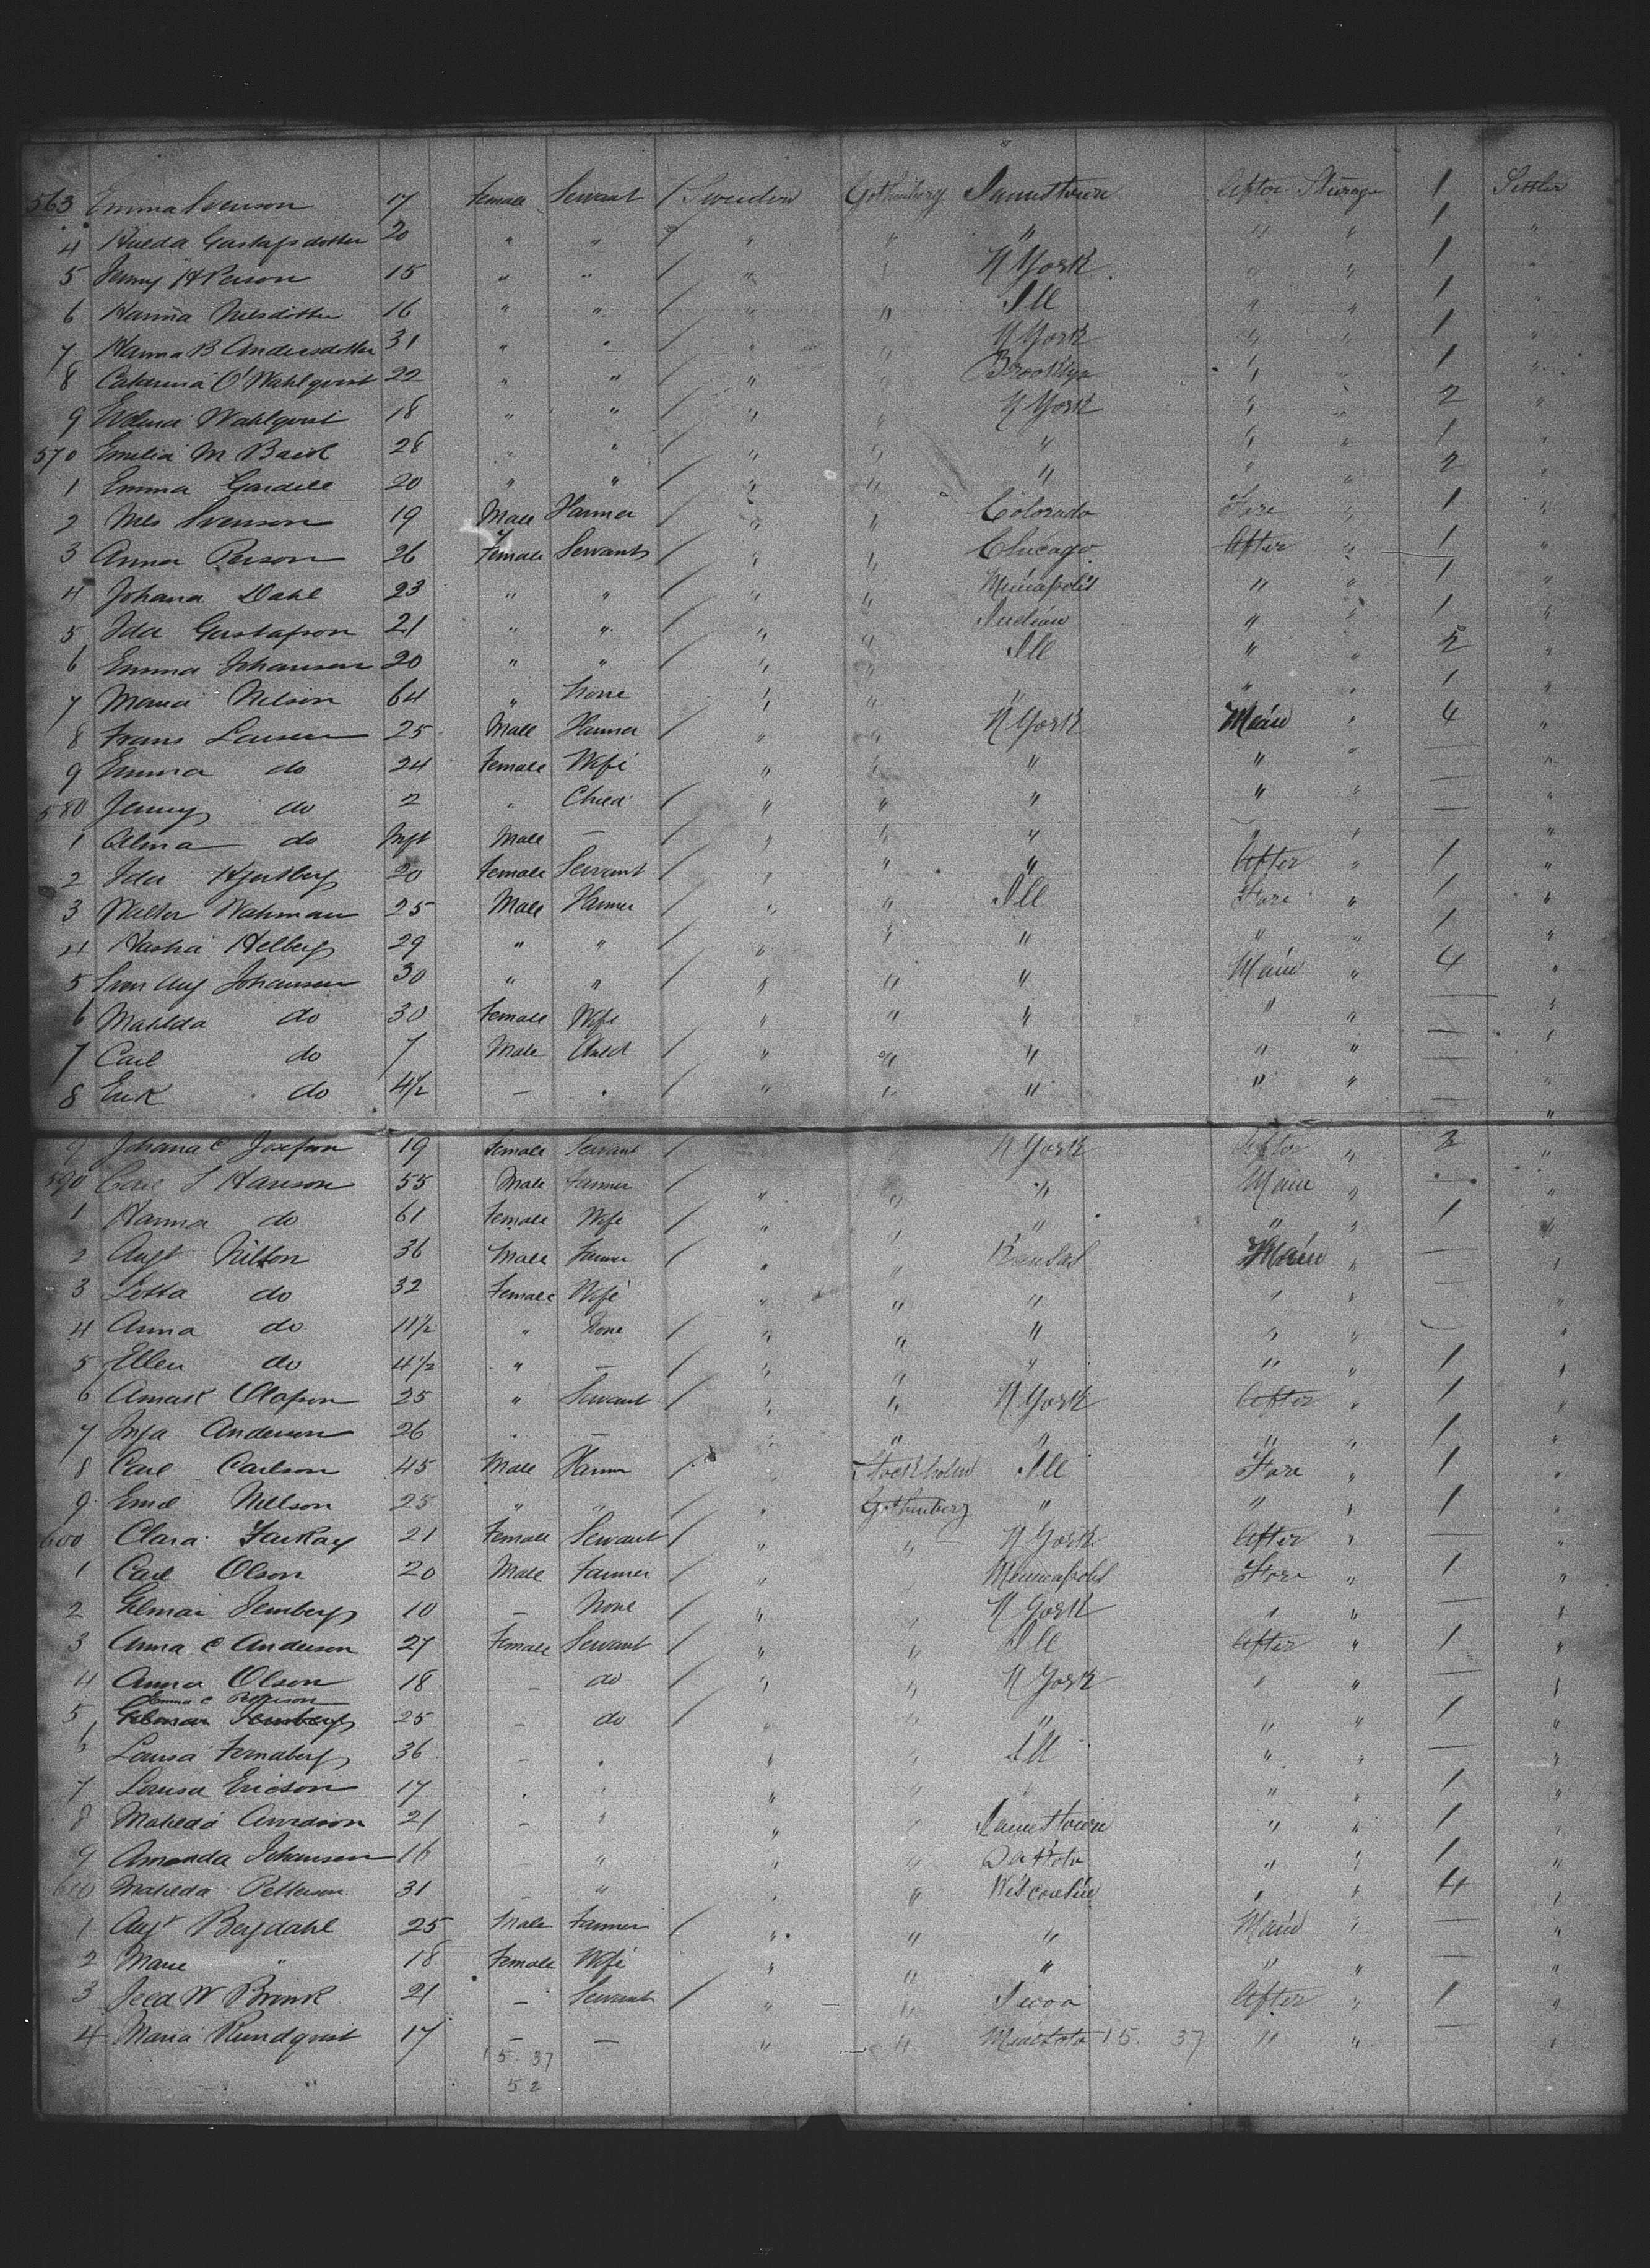 563 Emma Svenson 17 Female Servant / Sweden Gothenburg Jamestown After Steerage 1 Settler
4 Hulda Gustafsdotter 20 " " / " " " " " 1 "
5 Jenny H Person 15 " " / " " N York " " 1 "
6 Hanna Nelsdotter 16 " " / " " Ill " " 1
7 Hanna B Andersdotter 31 " " / " " N York " " 1 "
8 Catarina O Wahlqvist 22 " " / " " Brooklyn " " 1 "
9 Wahlqvist 18 " " / " " N York " " 2 "
570 Emilia M 28 " " / " " " " " 1 "
1 Emma Gardell 20 " " / " " " " " 2 "
2 Nels Svenson 19 Male Farmer / " " Colorado Fore " 1 "
3 Anna Person 26 Female Servant / " " Chicago After " 1 "
4 Johana Dahl 23 " " / " " Minapolis " " 1 "
5 Ida Gustafson 21 " " / " " Indian " " 1 "
6 Emma Johansen 20 " " / " " Ill " " 2 "
7 Maria Nelson 64 " None " " " " " 1 "
8 Frans Larsen 25 Male Farmer / " " N York Main " 4 "
9 Emma do 24 Female Wife " " " " " — "
580 Jenny do 2 " Child / " " " " " — "
1 Alma do Inft Male — / " " " " " — "
2 Ida 20 Female Servant / " " " After " 1 "
3 Walter Wahman 25 Male Farmer / " " Ill Fore " 1 "
4 Helberg 29 " " / " " " " " 1 "
5 Sven Aug Johansen 30 " " / " " " Main " 4 "
6 Matilda do 30 Female Wife " " " " " — "
7 Carl do 7 Male Child / " " " " " — "
8 Erik do 4½ — " / " " " " " — "
9 Johana C Josefson 19 Female Servant / N York After " 2 "
590 Carl S Hanson 55 Male Farmer / " " " Main " — "
1 Hanna do 61 Female Wife / " " " " " 1 "
2 Augt Nilson 36 Male Farmer / " " Kansas Main " — "
3 Lotta do 32 Female Wife " " " " " — "
4 Anna do 11½ " None / " " " " " "
5 Ellen do 4½ " — / " " " " " 1 "
6 Olofson 25 " Servant / " " N York After " 1 "
7 Inga Anderson 26 " — " " " " " 1 "
8 Carl Carlson 45 Male Farmer / " Stockholm Ill Fore " 1 "
9 Emil Nellson 25 " " / " Gothenberg " " " 1 "
600 Clara 21 Female Servant / " " N York After " — "
1 Carl Olson 20 Male Farmer / " Minneapolis Fore " 1 "
2 Jernberg 10 — None / " " N York " " — "
3 Anna C Anderson 27 Female Servant / " " Ill After " 1 "
4 Anna Olson 18 — do / " " N York " " — "
5 Emma C 25 — do / " " " " " 1 "
6 Lovisa 36 — " " " Ill " " — "
7 Lovisa Ericson 17 " " " " " " " 1 "
8 Matilda 21 — " " " Jamestown " " 1 "
9 Amanda Johansen 16 — " " " " " 1 "
610 Matilda Petterson 31 — " " " Wisconsin " " 4 "
1 Augt Bergdahl 25 Male Farmer / " " " Main " — "
2 Marie " 18 Female Wife " " " " " — "
3 W 21 — Servant / " " Iowa After " 1 "
4 Maria Rundqvist 17 — — " " 15. 37 " " — "
15 37
52